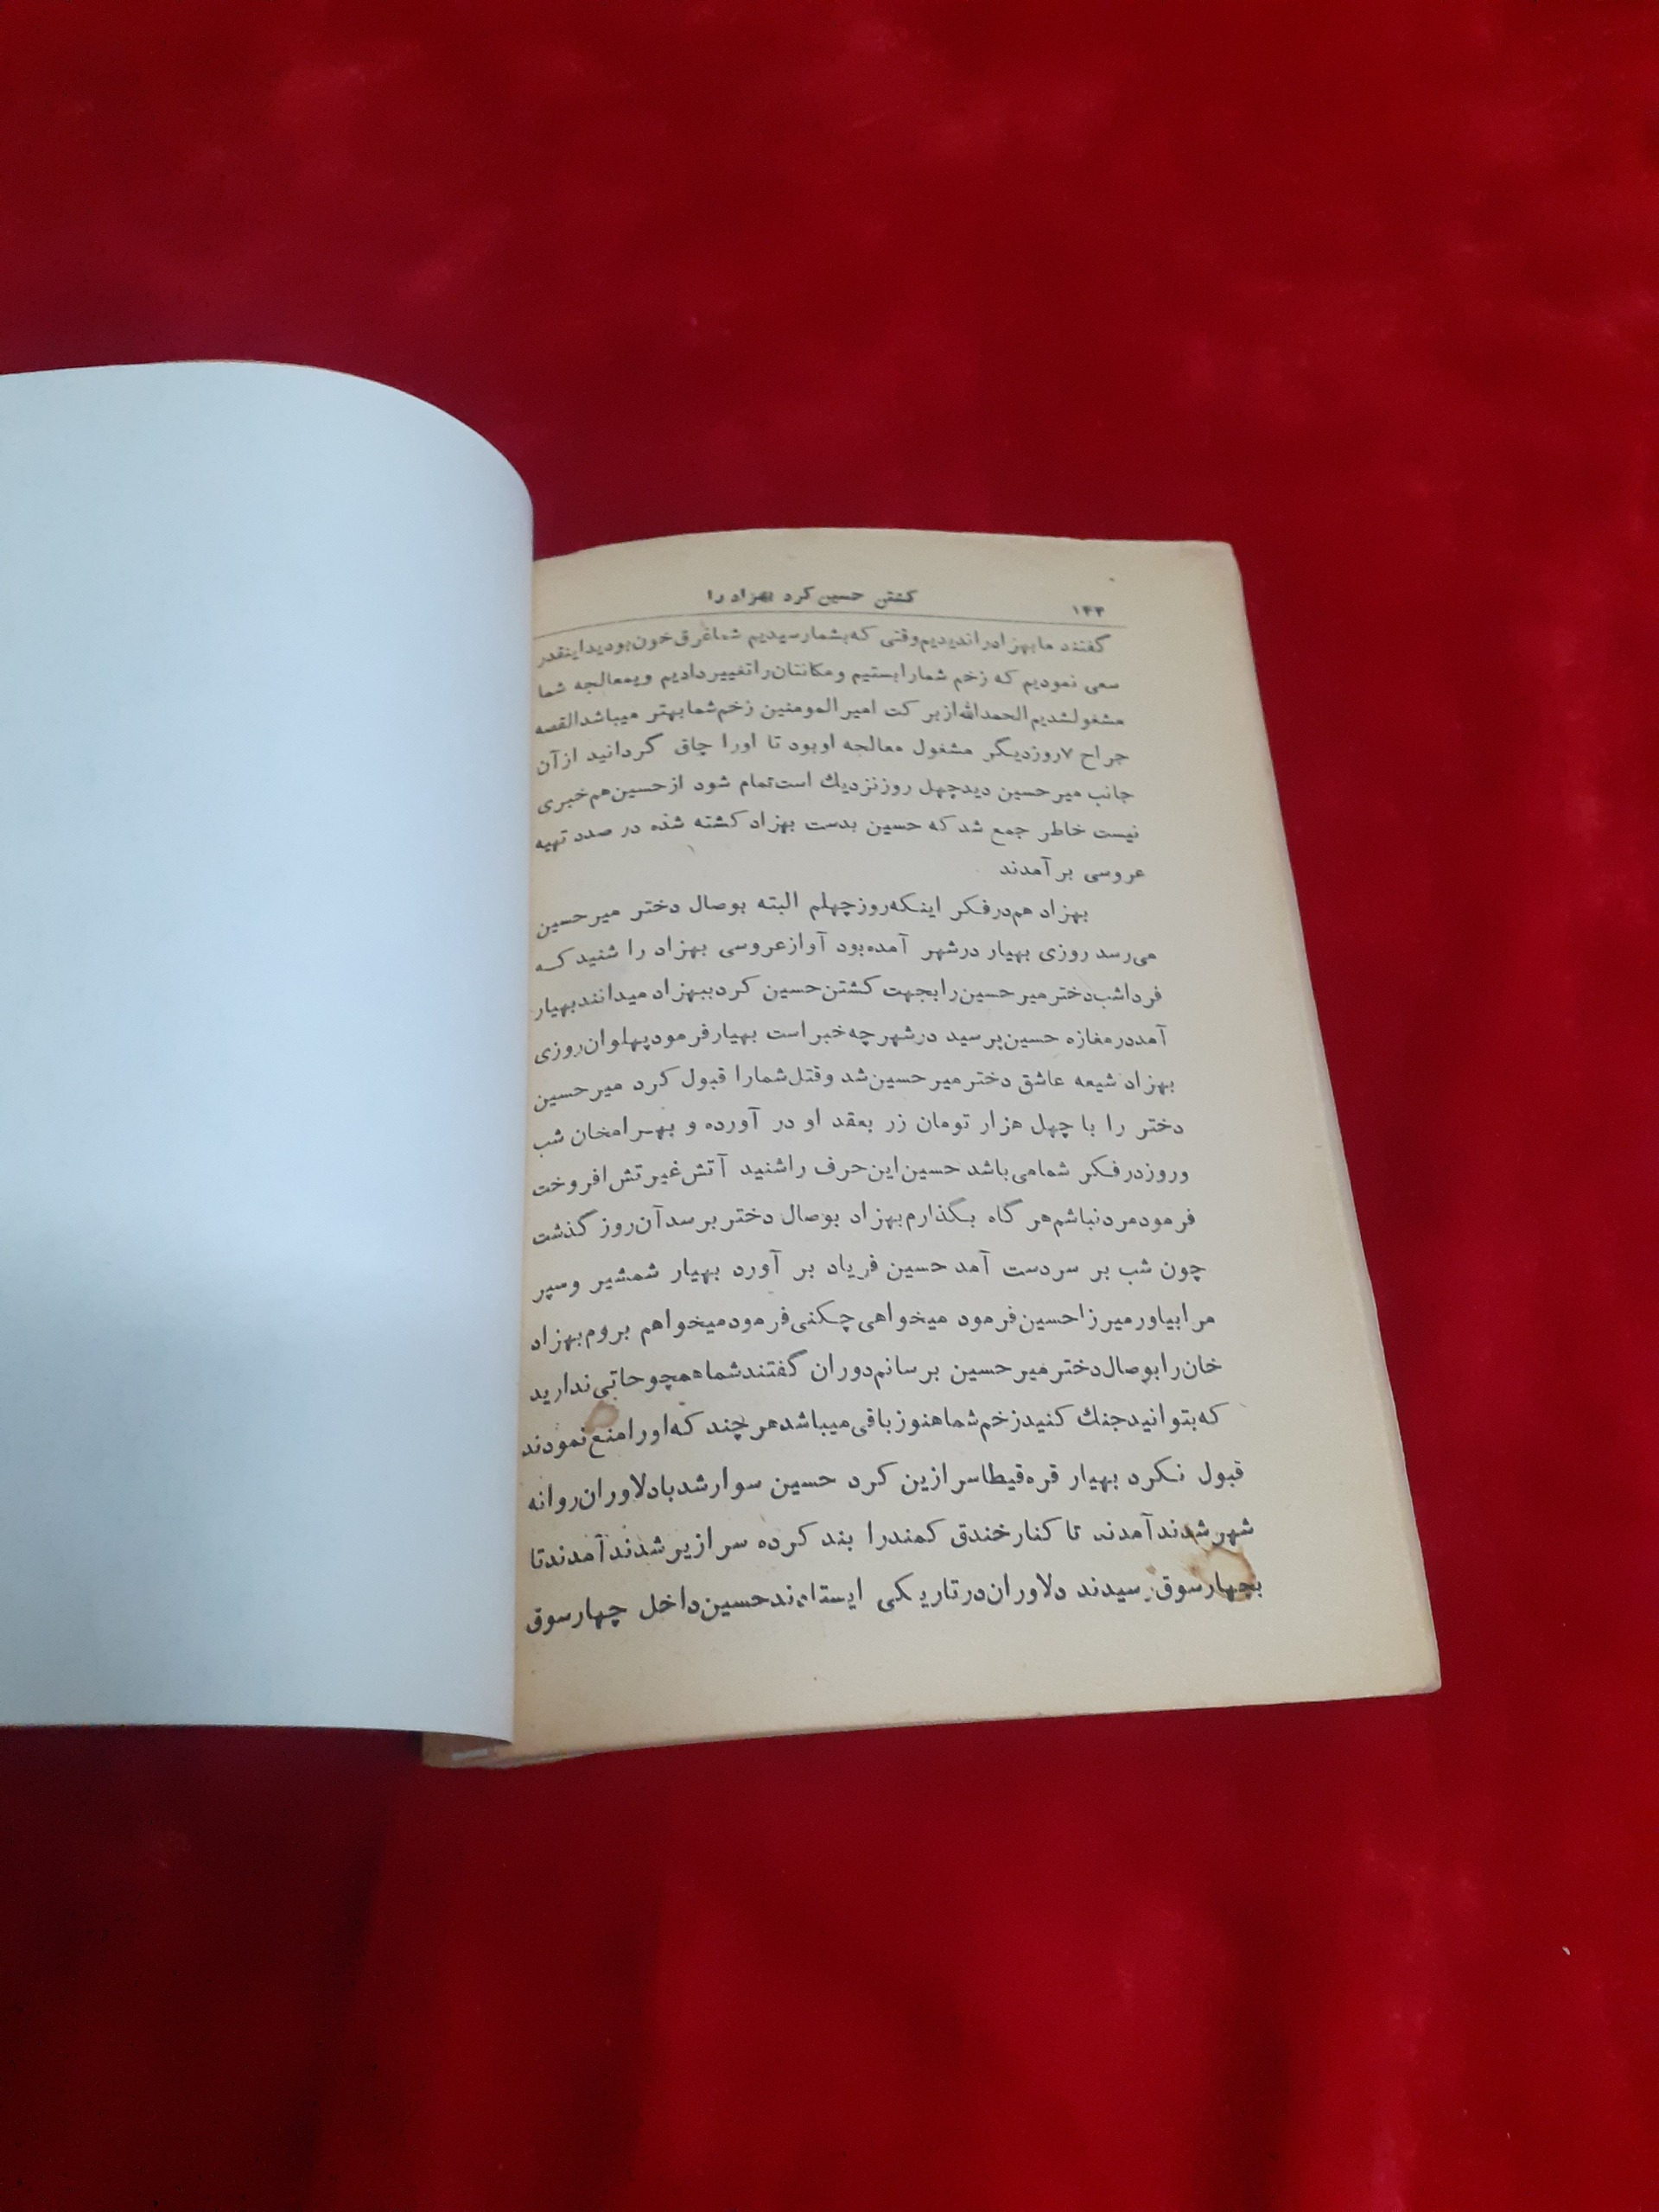 ۱۴۴
کشتن حسین کرد بهزاد را
گفتند ما بهزاد را ندیدیم وقتی که بشما رسیدیم شما غرق خون بودید اینقدر
سعی نمودیم که زخم شما را بستیم و مکانتان را تغییر دادیم و بمعالجه شما
مشغول شدیم الحمدالله از برکت امیرالمومنین زخم شما بهتر میباشد القصه
جراح ۷ روز دیگر مشغول معالجه او بود تا او را چاق گردانید از آن
جانب میر حسین دید چهل روز نزدیك است تمام شود از حسین هم خبری
نیست خاطر جمع شد که حسین بدست بهزاد کشته شده در صدد تهیه
عروسی بر آمدند
بهزاد هم در فکر اینکه روز چهلم البته بوصال دختر میر حسین
می رسد روزی بهیار در شهر آمده بود آواز عروسی بهزاد را شنید که
فردا شب دختر میر حسین را بجهت کشتن حسین کرد ببهزاد میدانند بهیار
آمد در مغازه حسین پرسید در شهر چه خبر است بهیار فرمود پهلوان روزی
بهزاد شیعه عاشق دختر میر حسین شد و قتل شما را قبول کرد میر حسین
دختر را با چهل هزار تومان زر بعقد او در آورده و بهرامخان شب
و روز در فکر شما می باشد حسین این حرف را شنید آتش غیرتش افروخت
فرمود مرد نباشم هر گاه بگذارم بهزاد بوصال دختر برسد آن روز گذشت
چون شب بر سر دست آمد حسین فریاد بر آورد بهیار شمشیر و سپر
مرا بیاور میرزا حسین فرمود میخواهی چکنی فرمود میخواهم بروم بهزاد
خان را بوصال دختر میر حسین برسانم دوران گفتند شما همچو حاتبی ندارید
که بتوانید جنك کنید زخم شما هنوز باقی میباشد هر چند که او را منع نمودند
قبول نکرد بهیار قره قیطاسرا زین کرد حسین سوار شد با دلاوران روانه
شهر شدند آمدند تا کنار خندق کمند را بند کرده سرازیر شدند آمدند تا
بچهار سوق سیدند دلاوران در تاریکی ایستادند حسین داخل چهار سوق